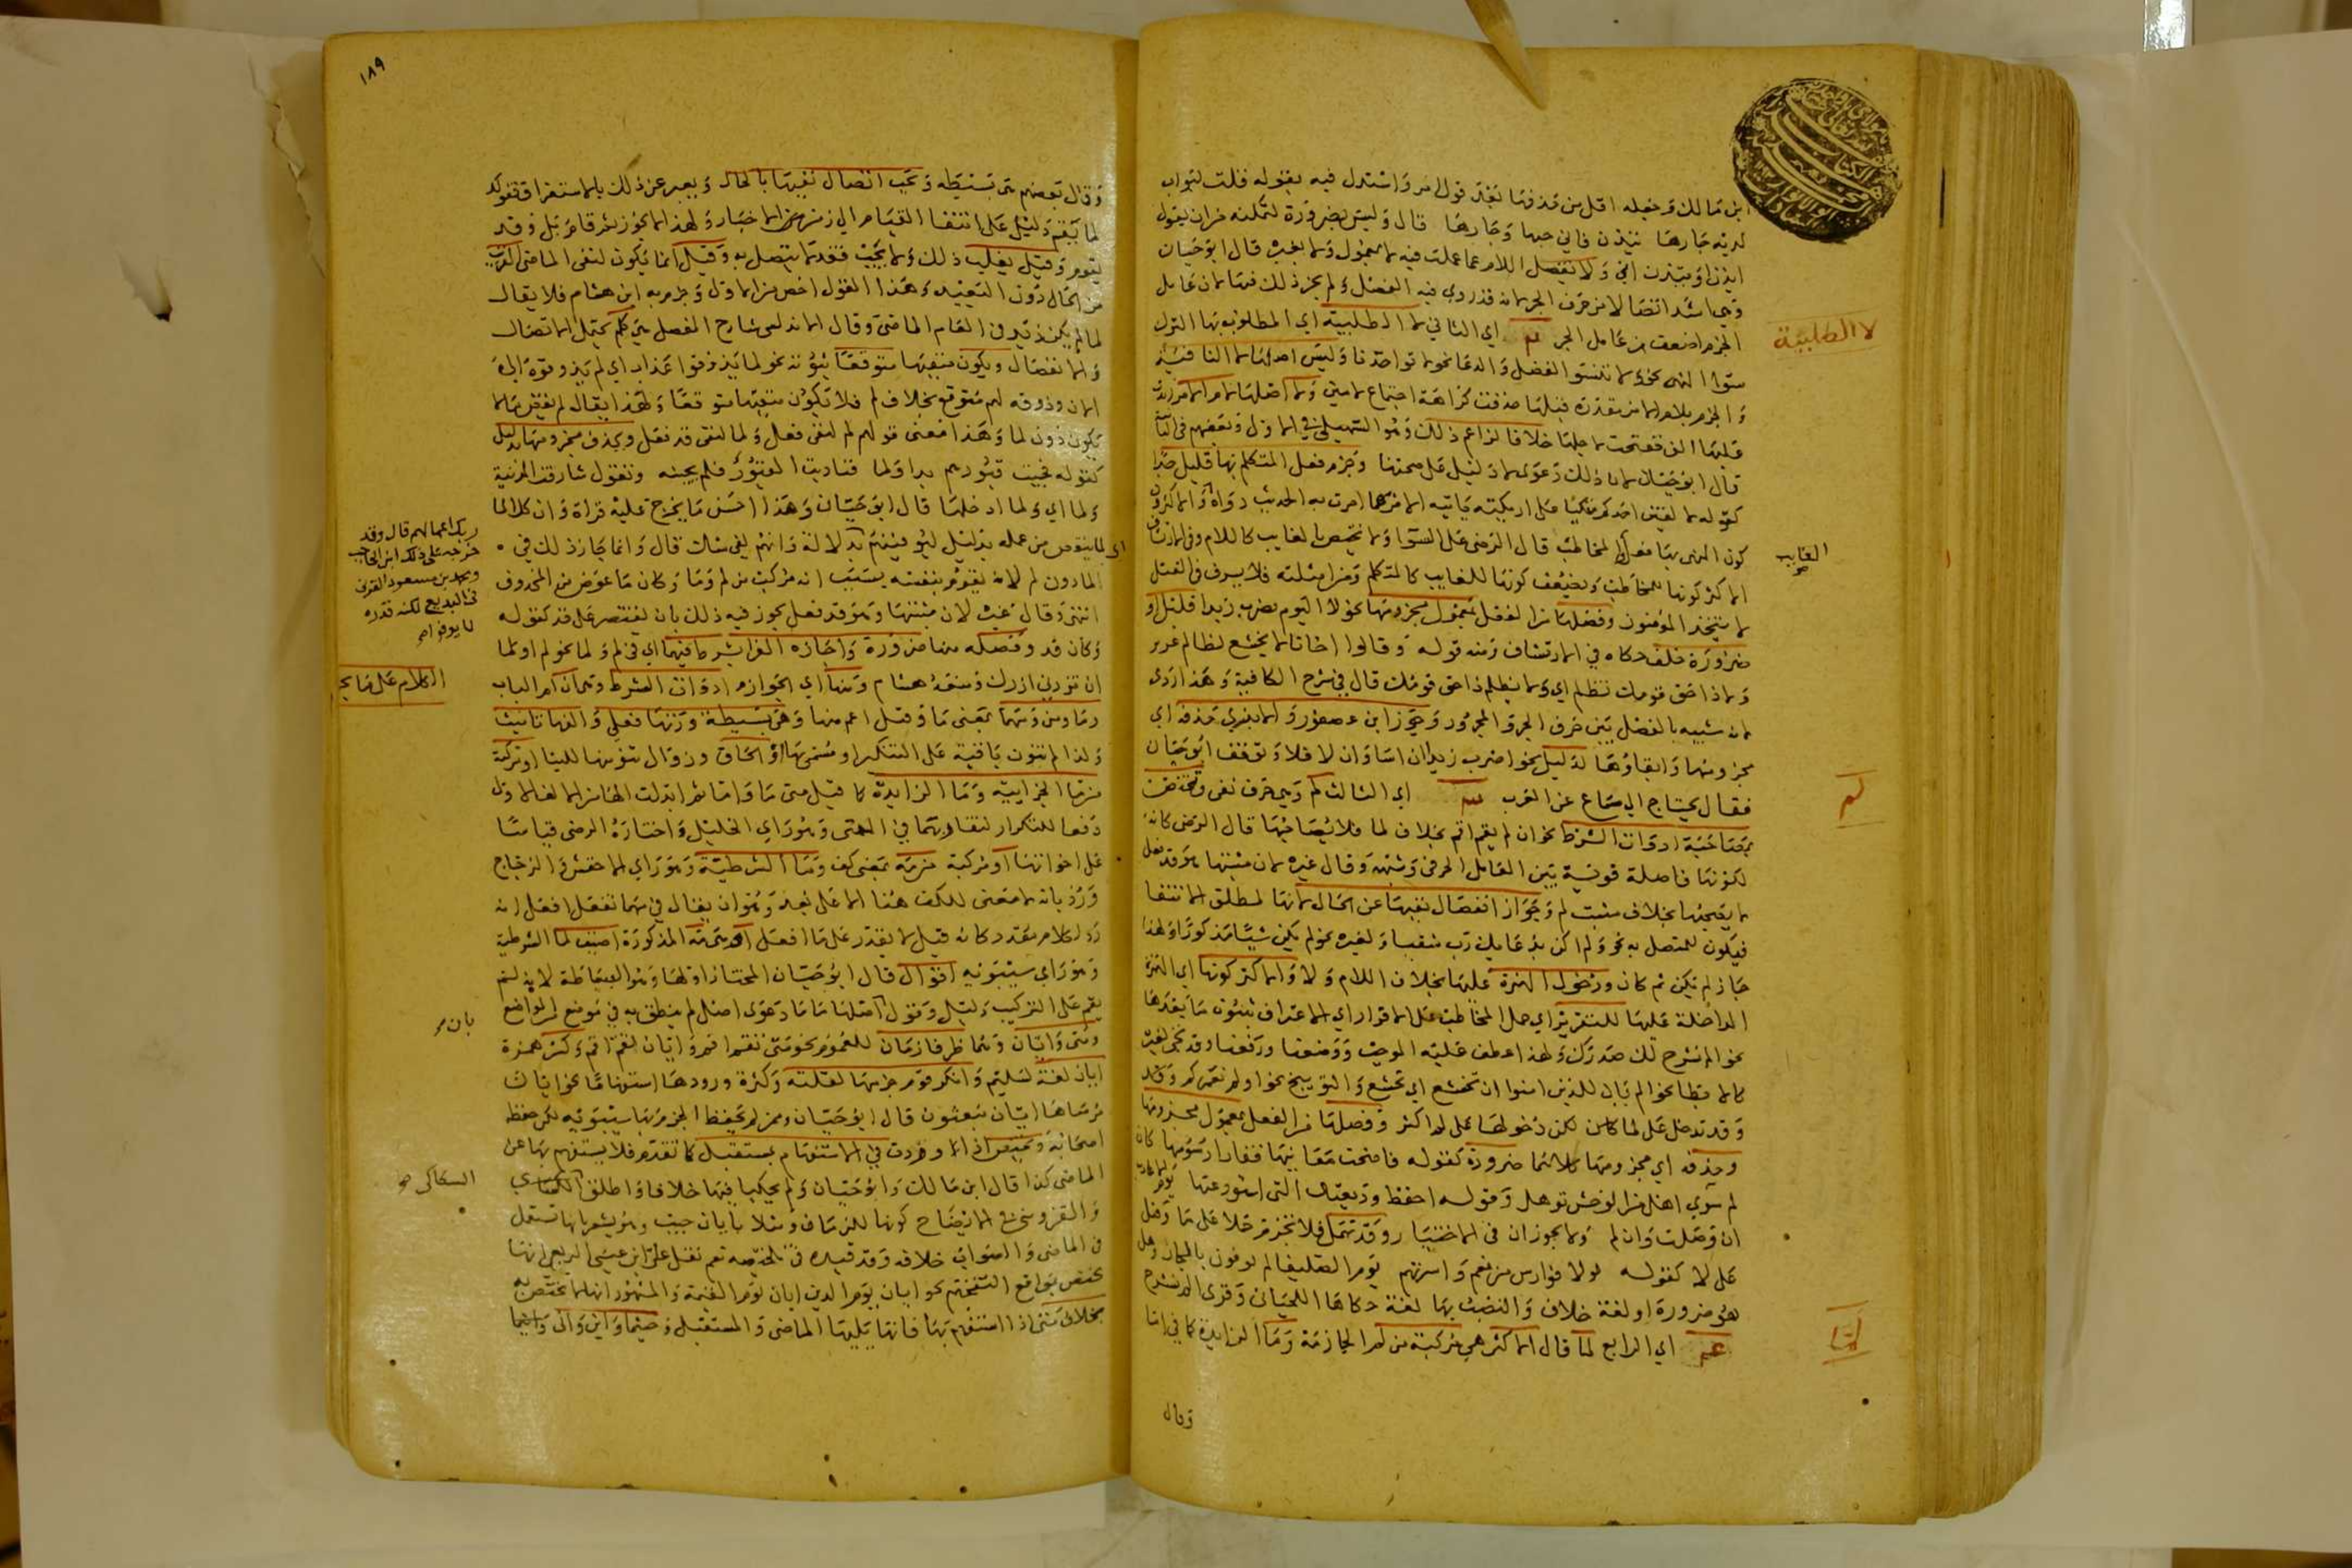 ابن مالك وجعله اقل من حذفها بعد قول واستدل فيه بقوله قلت لبواب
لديه دارها تيذن فاني حمها وجارها قال وليس بضرورة لتمكنه من ان يقول
ايذن او تيذن اني ولا يفصل اللام عما عملت فيه لا بمعمول ولا بغيره قال ابو حيان
وهي اشد اتصالا من حرف الجر لانه قد روي فيه الفصل ولم يجز ذلك فيها لان عامل
الجزم اضعف من عامل الجر اي الثاني لا الطلبية اي المطلوب بها الترك
لا الطلبية
سوا النهي نحو ولا تنسوا الفضل والدعا نحو لا تواخذنا وليس اصلها لا النافية
والجزم بلام الامر مقدرة قبلها حذفت كراهة اجتماع لامين ولا اصلها لام الامر زيدت
عليها الف ففتحت لاجلها خلافا لزاعم ذلك وهو السهيلي في الاول وبعضهم في الثاني
قال ابو حيان لان ذلك دعوى لا دليل على صحتها وجزم فعل المتكلم بها قليل جدا
كقوله لا الفين احدكم متكيا على اريكته ياتيه الامر مما امرت به الحديث رواه والاكثرون
كون النهي بها فعل المخاطب قال الرضي على السوا ولا تختص بالغايب كاللام وفي الارتشاف
الغايب صح
الاكثر كونها للمخاطب ويضعف كونها للغايب كالمتكلم ومن امثلته فلا يسرف في القتل
لا يتخذ المؤمنون وفصلها من الفعل بمعمول مجزومها نحو لا اليوم يضرب زيد قليل او
ضرورة خلف حكاه في الارتشاف ومنه قوله وقالوا اخانا لا تخشع لظالم عزيز
ولا ذا حق قومك تظلم اي ولا تظلم ذا حق قومك قال في شرح الكافية وهذا ردي
لانه شبيه بالفصل بين حرف الجر والمجرور وجوز ابن عصفور والابذي حذفه اي
مجزومها وابقاؤها لدليل نحو اضرب زيدا ان اسا وان لا فلا وتوقف ابو حيان
فقال يحتاج الى سماع عن العرب اي الثالث لم وهي حرف نفي وتختص
لم
بمصاحبة ادوات الشرط نحو ان لم يقم اقم بخلاف لما فلا يصاحبها قال الرضي كانه
لكونها فاصلة قوية بين العامل الحرفي وشبهه وقال غيره لان مثبتها وهو قد فعل
لا يصحبها بخلاف مثبت لم وجواز انفصال نفيها عن الحال لانها لمطلق الانتفا
فيكون للمتصل به نحو ولم اكن بدعايك رب شقيا ولغيره نحو لم يكن شيا مذكورا ولهذا
جاز لم يكن ثم كان ودخول الهمزة عليها بخلاف اللام ولا والاكثر كونها اي الهمزة
الداخلة عليها للتقرير اي حمل المخاطب على الاقرار اي الاعتراف بثبوت ما بعدها
نحو الم نشرح لك صدرك ولهذا عطف عليه الموجب ووضعنا ورفعنا وقد تجي لغيره
كالاستبطا نحو الم يان للذين امنوا ان تخشع اي تخشع والتوبيخ نحو اولم نعمركم وقد
وقد تدخل على لما لكن دخولها على لم اكثر وفصلها من الفعل بمعمول مجزومها
وحذفه اي مجزومها كلاهما ضرورة كقوله فاضحت مغانيها قفارا رسومها كان
لم سوى اهل من الوحش توهل وقوله احفظ وديعتك التي استودعتها يوم
ان وصلت وان لم ولا يجوزان في الاختيار وقد تهمل فلا تجزم حملا على ما وقيل
على لا كقوله لولا فوارس من نعم واسرتهم يوم الصليفا لم يوفون بالجار وهل
هو ضرورة او لغة خلاف والنصب بها لغة حكاها اللحياني وقري الم نشرح
اي الرابع لما قال الاكثر هي مركبة من لم الجازمة وما الزايدة كما في اما
لما
وقال
١٨٩
وقال بعضهم هي بسيطة ويجب اتصال نفيها بالحال ويعبر عن ذلك بالاستغراق فقولك
لما يقم دليل على انتفا القيام الى زمن الاخبار ولهذا لا يجوز ثم قام بل وقد
يقوم وقيل يغلب ذلك ولا يجب فقد لا يتصل به وقيل انما يكون لنفي الماضي القريب
من الحال دون البعيد وهذا القول اخص من الاول وجزم به ابن هشام فلا يقال
لما يكن زيد في العام الماضي وقال الاندلسي شارح المفصل هي كلم تحتمل الاتصال
والانفصال ويكون منفيها متوقعا ثبوته نحو لما يذوقوا عذاب اي لم يذوقوه الى
الان وذوقه لهم متوقع بخلاف لم فلا يكون منفيها متوقعا ولهذا يقال لم يقض مالا
يكون دون لما وهذا معنى قولهم لم لنفي فعل ولما لنفي قد فعل ويحذف مجزومها لدليل
كقوله فجيت قبورهم بدا ولما فناديت القبور فلم يجبنه وتقول شارفت المدينة
ولما اي ولما ادخلها قال ابو حيان وهذا احسن ما يخرج عليه قراة وان كلا لما
اي لما ينقص من عمله بدليل ليوفينهم بدلالة وانهم لفي شك قال وانما جاز ذلك في
لما دون لم لانه يقوم بنفسه بسبب انه مركب من لم وما وكان ما عوض من المحذوف
ربك اعمالهم قال وقد
خرجه على ذلك ابن الحاجب
ومحمد بن مسعود الغزني
في البديع لكنه قدره
لا يوفوا صح
انتهى وقال غيره لان مثبتها وهو قد فعل يجوز فيه ذلك بان يقتصر على قد كقوله
وكان قد وفصله منها ضرورة واجازه الفرا بشرط فيهما اي في لم ولما نحو لم او لما
ان تزورني ازرك ومنعه هشام ومنها اي الجوازم ادوات الشرط وهي ان ام الباب
الكلام على ما يجزم
وما ومن ومهما بمعنى ما وقيل اعم منها وهي بسيطة وزنها فعلى والفها تانيث
ولذا لم تنون باقية على التنكير او مسمى بها او الحاق وزوال تنوينها للبنا او مركبة
من ما الجزاييه وما الزايدة كما قيل متى ما واما ثم ابدلت الها من الالف الاولى
دفعا للتكرار لتقاربهما في المعنى وهو راي الخليل واختاره الرضي قياسا
على اخواتها او مركبة من مه بمعنى كف وما الشرطية وهو راي الاخفش والزجاج
ورد بانه لا معنى للكف هنا الا على بعد وهو ان يقال في مهما تفعل افعل انه
رد لكلام مقدر كانه قيل لا تقدر على ما افعل المذكورة اضيف لما الشرطية
وهو راي سيبويه اقوال قال ابو حيان المختار اولها وهو البساطة لانه لم
يقم على التركيب دليل وقول اصلها ما ما دعوى اصل لم ينطق به في موضع من المواضع
بان صح
ومتى وايان وهما ظرفا زمان للعموم نحو متى تقم اقم وايان تقم اقم وكسر همزة
ايان لغة لسليم وانكر قوم جزمها لقلته وكثرة ورودها استفهاما نحو ايان
مرساها ايان يبعثون قال ابو حيان وممن لم يحفظ الجزم بها سيبويه لكن حفظ
اصحابه وتختص اذا وردت في الاستفهام بمستقبل كما تقدم فلا يستفهم بها عن
الماضي كذا قال ابن مالك وابو حيان ولم يحكيا فيها خلافا واطلق
السكاكي صح
والقزويني في الايضاح كونها للزمان ومثلا بايان جيت وهو يشعر بانها تستعمل
في الماضي والصواب خلافه وقد قيده في تلخيصه نعم نقل علي بن عيسى الربعي انها
تختص بمواقع التفخيم نحو ايان يوم الدين ايان يوم القيمة والمشهور انها لا تختص به
بخلاف متى اذا استفهم بها فانها يليها الماضي والمستقبل وحيثما واين واني